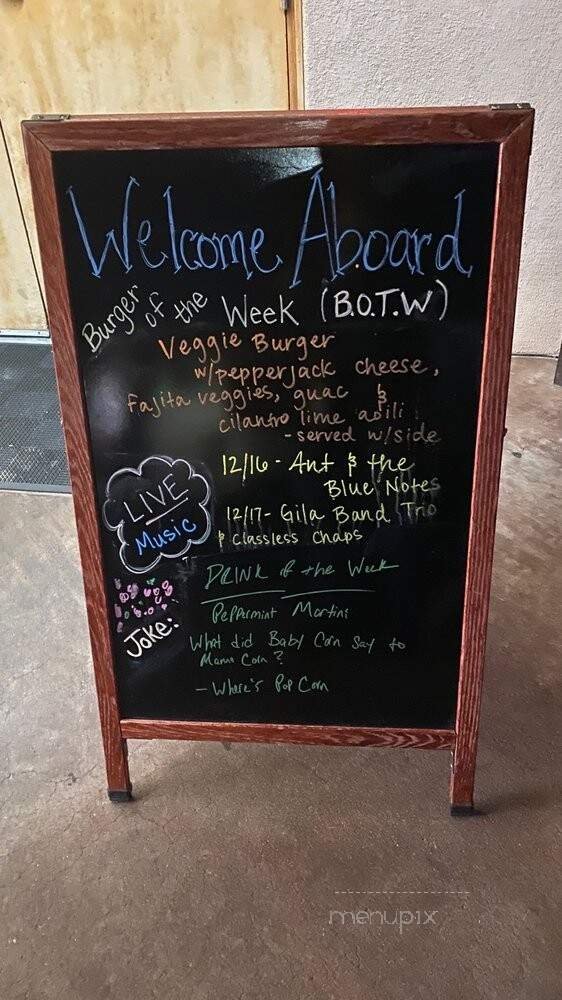 Welcome Aboard
Burger of the Week (B.O.T.W)
Veggie Burger
w/pepperjack cheese,
Fajita veggies, guac &
cilantro lime aoili
- served w/side
12/16 - Ant & the
Blue Notes
12/17 - Gila Band Trio
& Classless Chaps
LIVE
Music
DRINK of the Week
Peppermint Martini
Joke:
What did Baby Corn Say to
Mama Corn?
- Where's Pop Corn
menupix